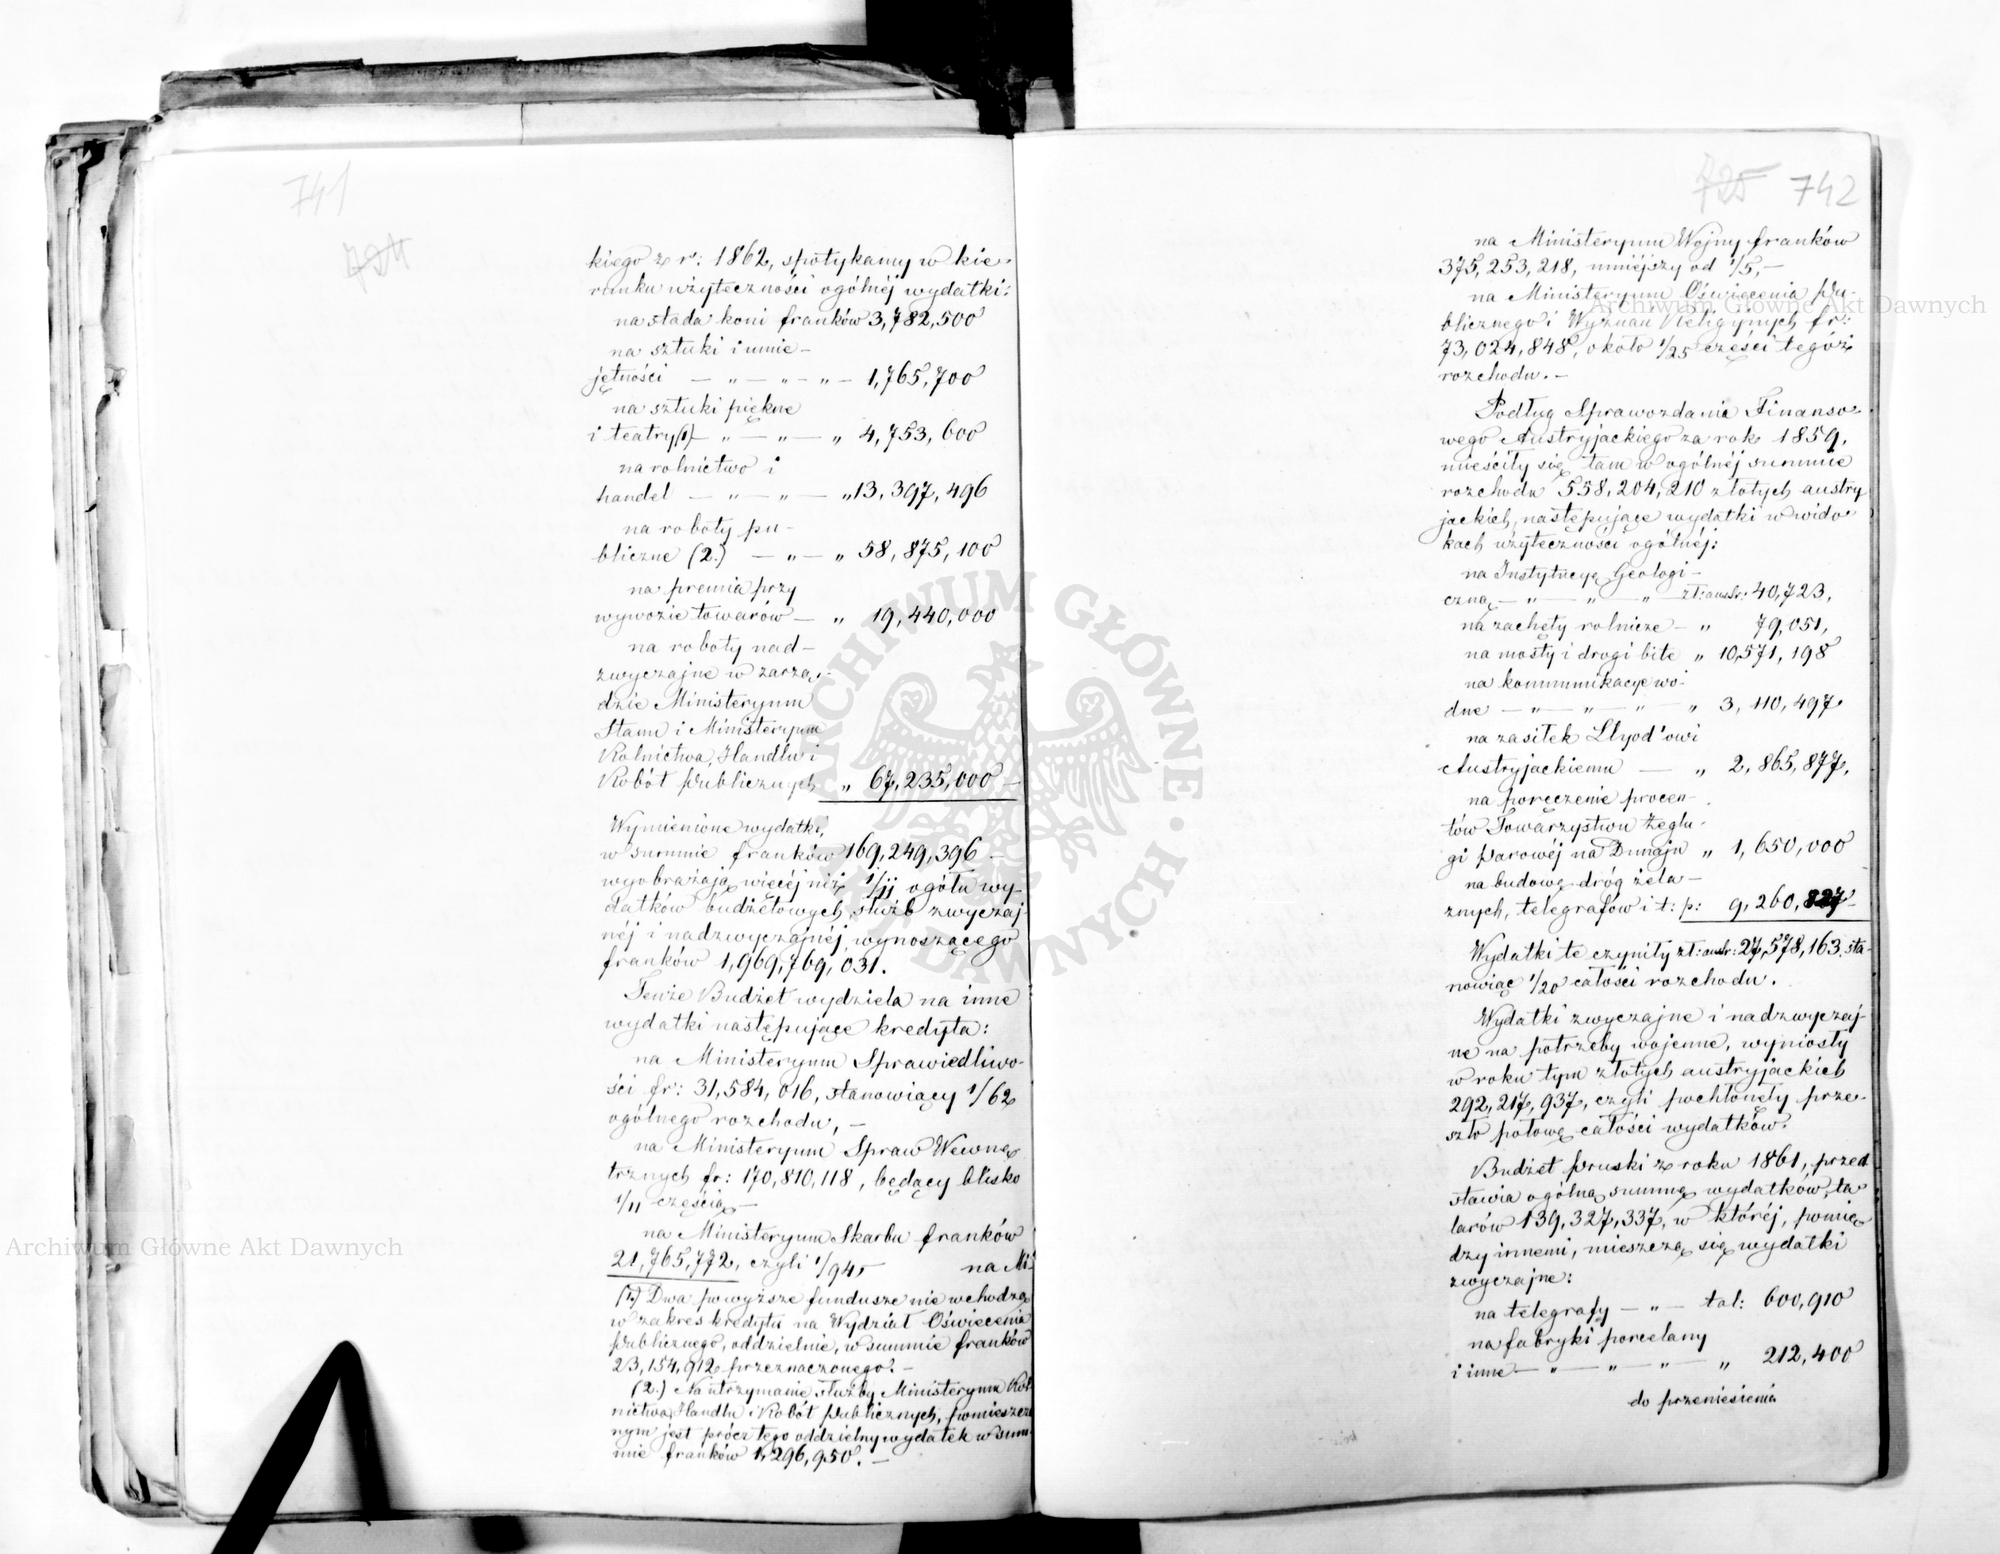 741
724
kiego z r: 1862, spotykamy w kie-
runku użyteczności ogólnéj wydatki:
na stada koni franków 3,782,500
na sztuki i umie-
jętności — „ — „ — „ — 1,765,700
na sztuki piękne
i teatry (1) — „ — „ — „ 4,753,600
na rolnictwo i
handel — „ — „ — „ 13,397,496
na roboty pu-
bliczne (2.) — „ — „ 58,875,100
na premia przy
wywozie towarów — „ 19,440,000
na roboty nad-
zwyczajne w zarzą-
dzie Ministeryum
Stanu i Ministeryum
Rolnictwa, Handlu i
Robót Publicznych „ 67,235,000 —
Wymienione wydatki,
w summie franków 169,249,396 —
wyobrażają więcéj niż 1/11 ogółu wy-
datków budżetowych, służb zwyczaj-
néj i nadzwyczajnéj, wynoszącego
franków 1,969,769,031.
Tenże Budżet wydziela na inne
wydatki następujące kredyta:
na Ministeryum Sprawiedliwo-
ści fr: 31,584,016, stanowiący 1/62
ogólnego rozchodu, —
na Ministeryum Spraw Wewnę-
trznych fr: 170,810,118, będący blisko
1/11 częścią —
na Ministeryum Skarbu franków
21,765,772, czyli 1/94,
na Mi-
(1.) Dwa powyższe fundusze nie wchodzą
w zakres kredytu na Wydział Oświecenia
Publicznego, oddzielnie, w summie franków
23,154,912 przeznaczonego. —
(2.) Na utrzymanie służby Ministeryum Rol-
nictwa, Handlu i Robót Publicznych, pomieszczo-
nym jest prócz tego oddzielny wydatek w sum-
mie franków 1,296,950. —
725 742
na Ministeryum Wojny franków
375,253,218, mniejszy od 1/5, —
na Ministeryum Oświecenia Pu-
blicznego i Wyznań Religijnych fr:
73,024,848, około 1/25 części tegóż
rozchodu. —
Podług Sprawozdania Finanso-
wego Austryjackiego za rok 1859,
mieściły się tam w ogólnéj summie
rozchodu 558,204,210 złotych austry
jackich, następujące wydatki w wido-
kach użyteczności ogólnéj:
na Instytucyą Geologi-
czną — „ — „ — „ zł: austr: 40,723,
na zachęty rolnicze — „ 79,051,
na mosty i drogi bite „ 10,571,198
na kommunikacye wo-
dne — „ — „ — „ — „ 3,110,497
na zasiłek Llyod'owi
Austryjackiemu — „ 2,865,877,
na poręczenie procen-
tów Towarzystwu żeglu-
gi Parowéj na Dunaju „ 1,650,000
na budowę dróg żela-
znych, telegrafów i t: p: 9,260,827 —
Wydatki te czyniły zł: austr: 27,578,163. sta-
nowiąc 1/20 całości rozchodu.
Wydatki zwyczajne i nadzwyczaj-
ne na potrzeby wojenne, wyniosły
w roku tym złotych austryjackich
292,217,937, czyli pochłonęły prze-
szło połowę całości wydatków.
Budżet Pruski z roku 1861, przed
stawia ogólną summę wydatków, ta-
larów 139,327,337, w któréj, pomię-
dzy innemi, mieszczą się wydatki
zwyczajne:
na telegrafy — „ — tal: 600,910
na fabryki porcelany
i inne — „ — „ — „ — „ 212,400
do przeniesienia
ARCHIWUM GŁÓWNE AKT DAWNYCH
Archiwum Główne Akt Dawnych
Archiwum Główne Akt Dawnych